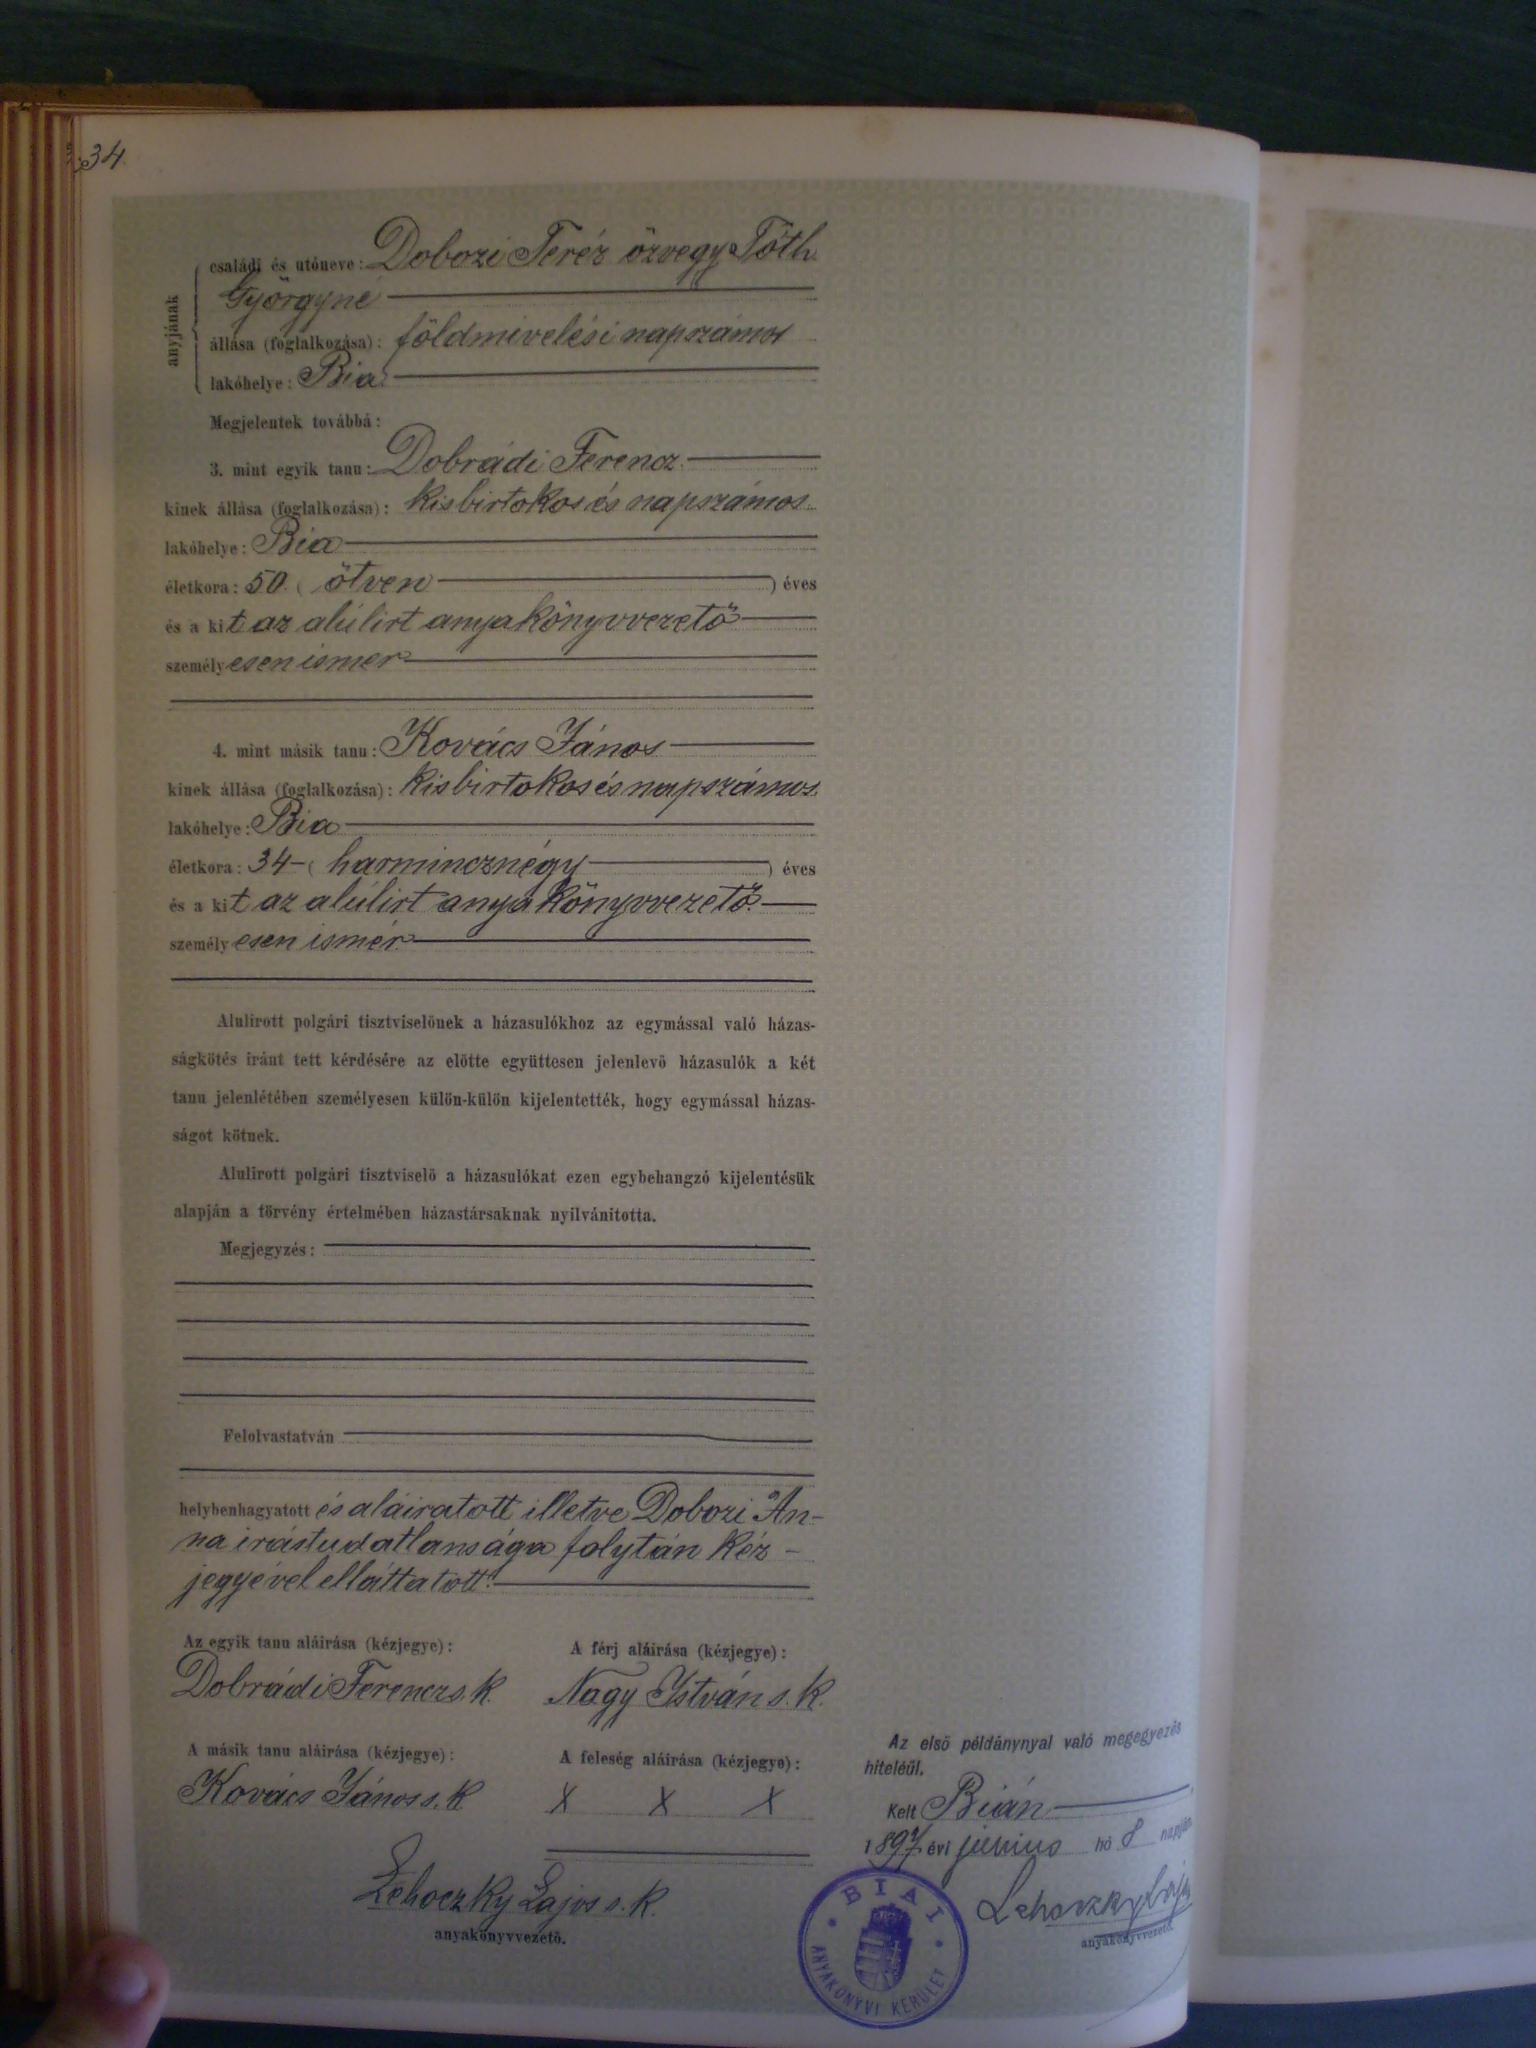 34
anyjának
családi és utóneve: Dobozi Teréz özvegy Tóth
Györgyné
állása (foglalkozása): földmivelési napszámos
lakóhelye: Bia
Megjelentek továbbá:
3. mint egyik tanu: Dobrádi Ferencz
kinek állása (foglalkozása): kisbirtokos és napszámos
lakóhelye: Bia
életkora: 50 (ötven) éves
és a kit az alúlirt anyakönyvvezető
személyesen ismer
4. mint másik tanu: Kovács János
kinek állása (foglalkozása): kisbirtokos és napszámos
lakóhelye: Bia
életkora: 34 (harmincznégy) éves
és a kit az alúlirt anyakönyvvezető
személyesen ismer
Alulirott polgári tisztviselőnek a házasulókhoz az egymással való házas-
ságkötés iránt tett kérdésére az előtte együttesen jelenlevő házasulók a két
tanu jelenlétében személyesen külön-külön kijelentették, hogy egymással házas-
ságot kötnek.
Alulirott polgári tisztviselő a házasulókat ezen egybehangzó kijelentésük
alapján a törvény értelmében házastársaknak nyilvánitotta.
Megjegyzés:
Felolvastatván
helybenhagyatott és aláiratott illetve Dobozi An-
na irástudatlansága folytán kéz-
jegyével elláttatott.
Az egyik tanu aláirása (kézjegye): A férj aláirása (kézjegye):
Dobrádi Ferencz s. k. Nagy István s. k.
A másik tanu aláirása (kézjegye): A feleség aláirása (kézjegye):
Kovács János s. k. X X X
Lehoczky Lajos s. k.
anyakönyvvezető.
Az első példánynyal való megegyezés
hiteléül.
Kelt Bián
1897 évi junius hó 8 napján
Lehoczky Lajos
anyakönyvvezető.
BIAI
ANYAKÖNYVI KERÜLET